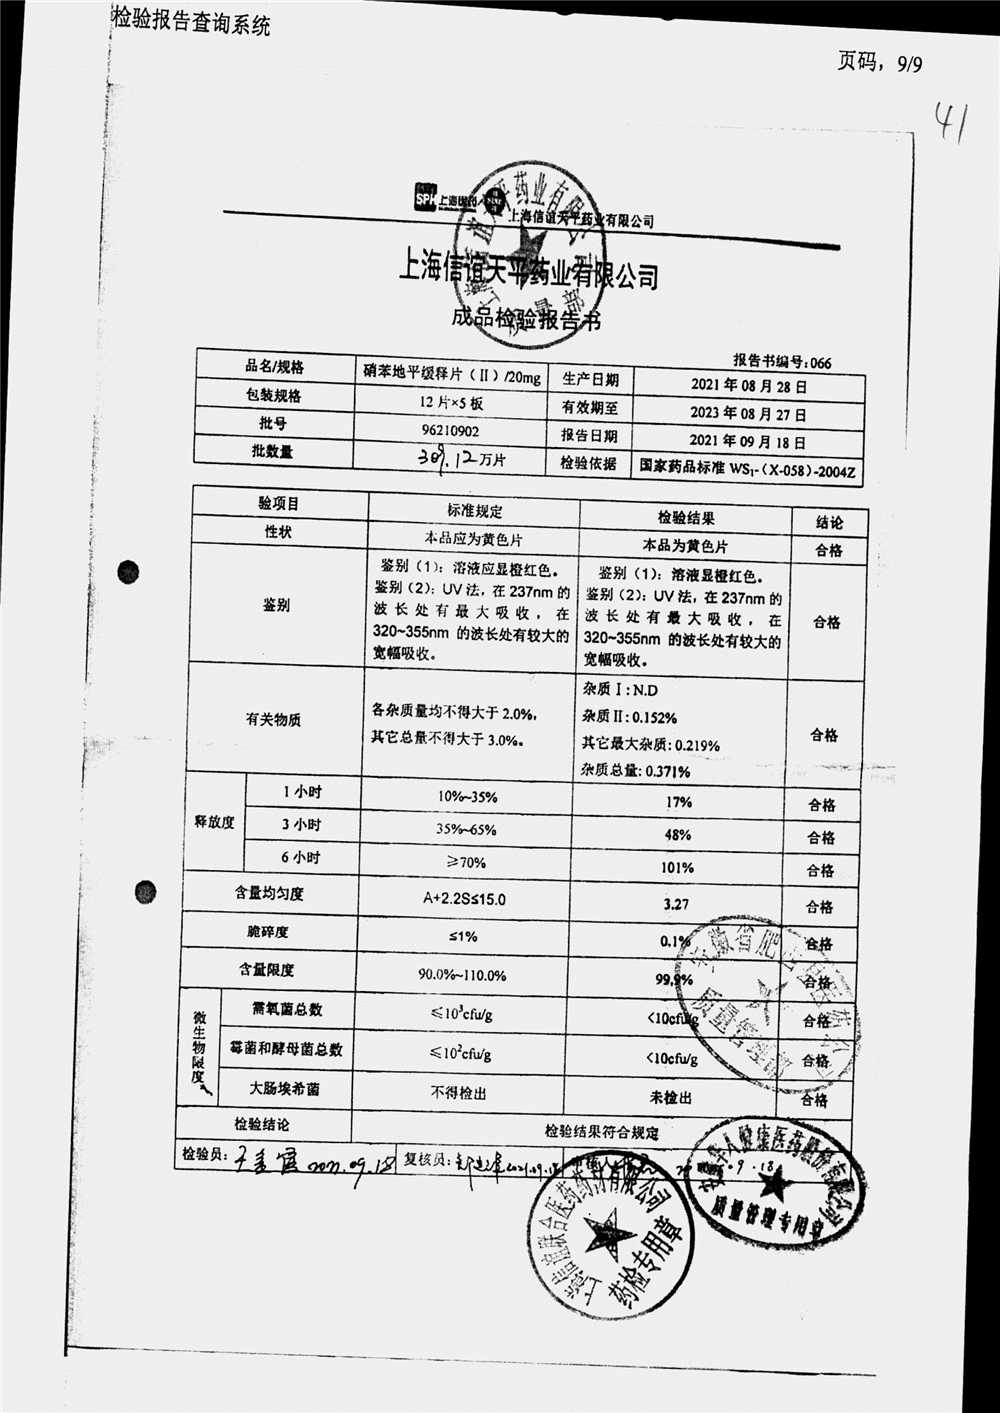 检验报告查询系统
页码，9/9
41
SPH 上海医药
上海信谊天平药业有限公司
上海信谊天平药业有限公司
成品检验报告书
报告书编号:066
品名/规格 硝苯地平缓释片（II）/20mg 生产日期 2021 年 08 月 28 日
包装规格 12 片×5 板 有效期至 2023 年 08 月 27 日
批号 96210902 报告日期 2021 年 09 月 18 日
批数量 .12万片 检验依据 国家药品标准 WS₁-（X-058）-2004Z
验项目 标准规定 检验结果 结论
性状 本品应为黄色片 本品为黄色片 合格
鉴别 鉴别（1）：溶液应显橙红色。 鉴别（1）：溶液显橙红色。 合格
鉴别（2）：UV 法，在 237nm 的 鉴别（2）：UV 法，在 237nm 的
波长处有最大吸收，在 波长处有最大吸收，在
320~355nm 的波长处有较大的 320~355nm 的波长处有较大的
宽幅吸收。 宽幅吸收。
有关物质 各杂质量均不得大于 2.0%， 杂质 I：N.D 合格
其它总量不得大于 3.0%。 杂质 II：0.152%
其它最大杂质：0.219%
杂质总量：0.371%
释放度 1 小时 10%~35% 17% 合格
3 小时 35%~65% 48% 合格
6 小时 ≥70% 101% 合格
含量均匀度 A+2.2S≤15.0 3.27 合格
脆碎度 ≤1% 0.1% 合格
含量限度 90.0%~110.0% 99.9% 合格
微生物限度 需氧菌总数 ≤10³cfu/g <10cfu/g 合格
霉菌和酵母菌总数 ≤10²cfu/g <10cfu/g 合格
大肠埃希菌 不得检出 未检出 合格
检验结论 检验结果符合规定
检验员： 2021.09.18 复核员： 2021.09.18 审核人 9.18
质量管理专用章
上海信谊联合医药药材有限公司
药检专用章